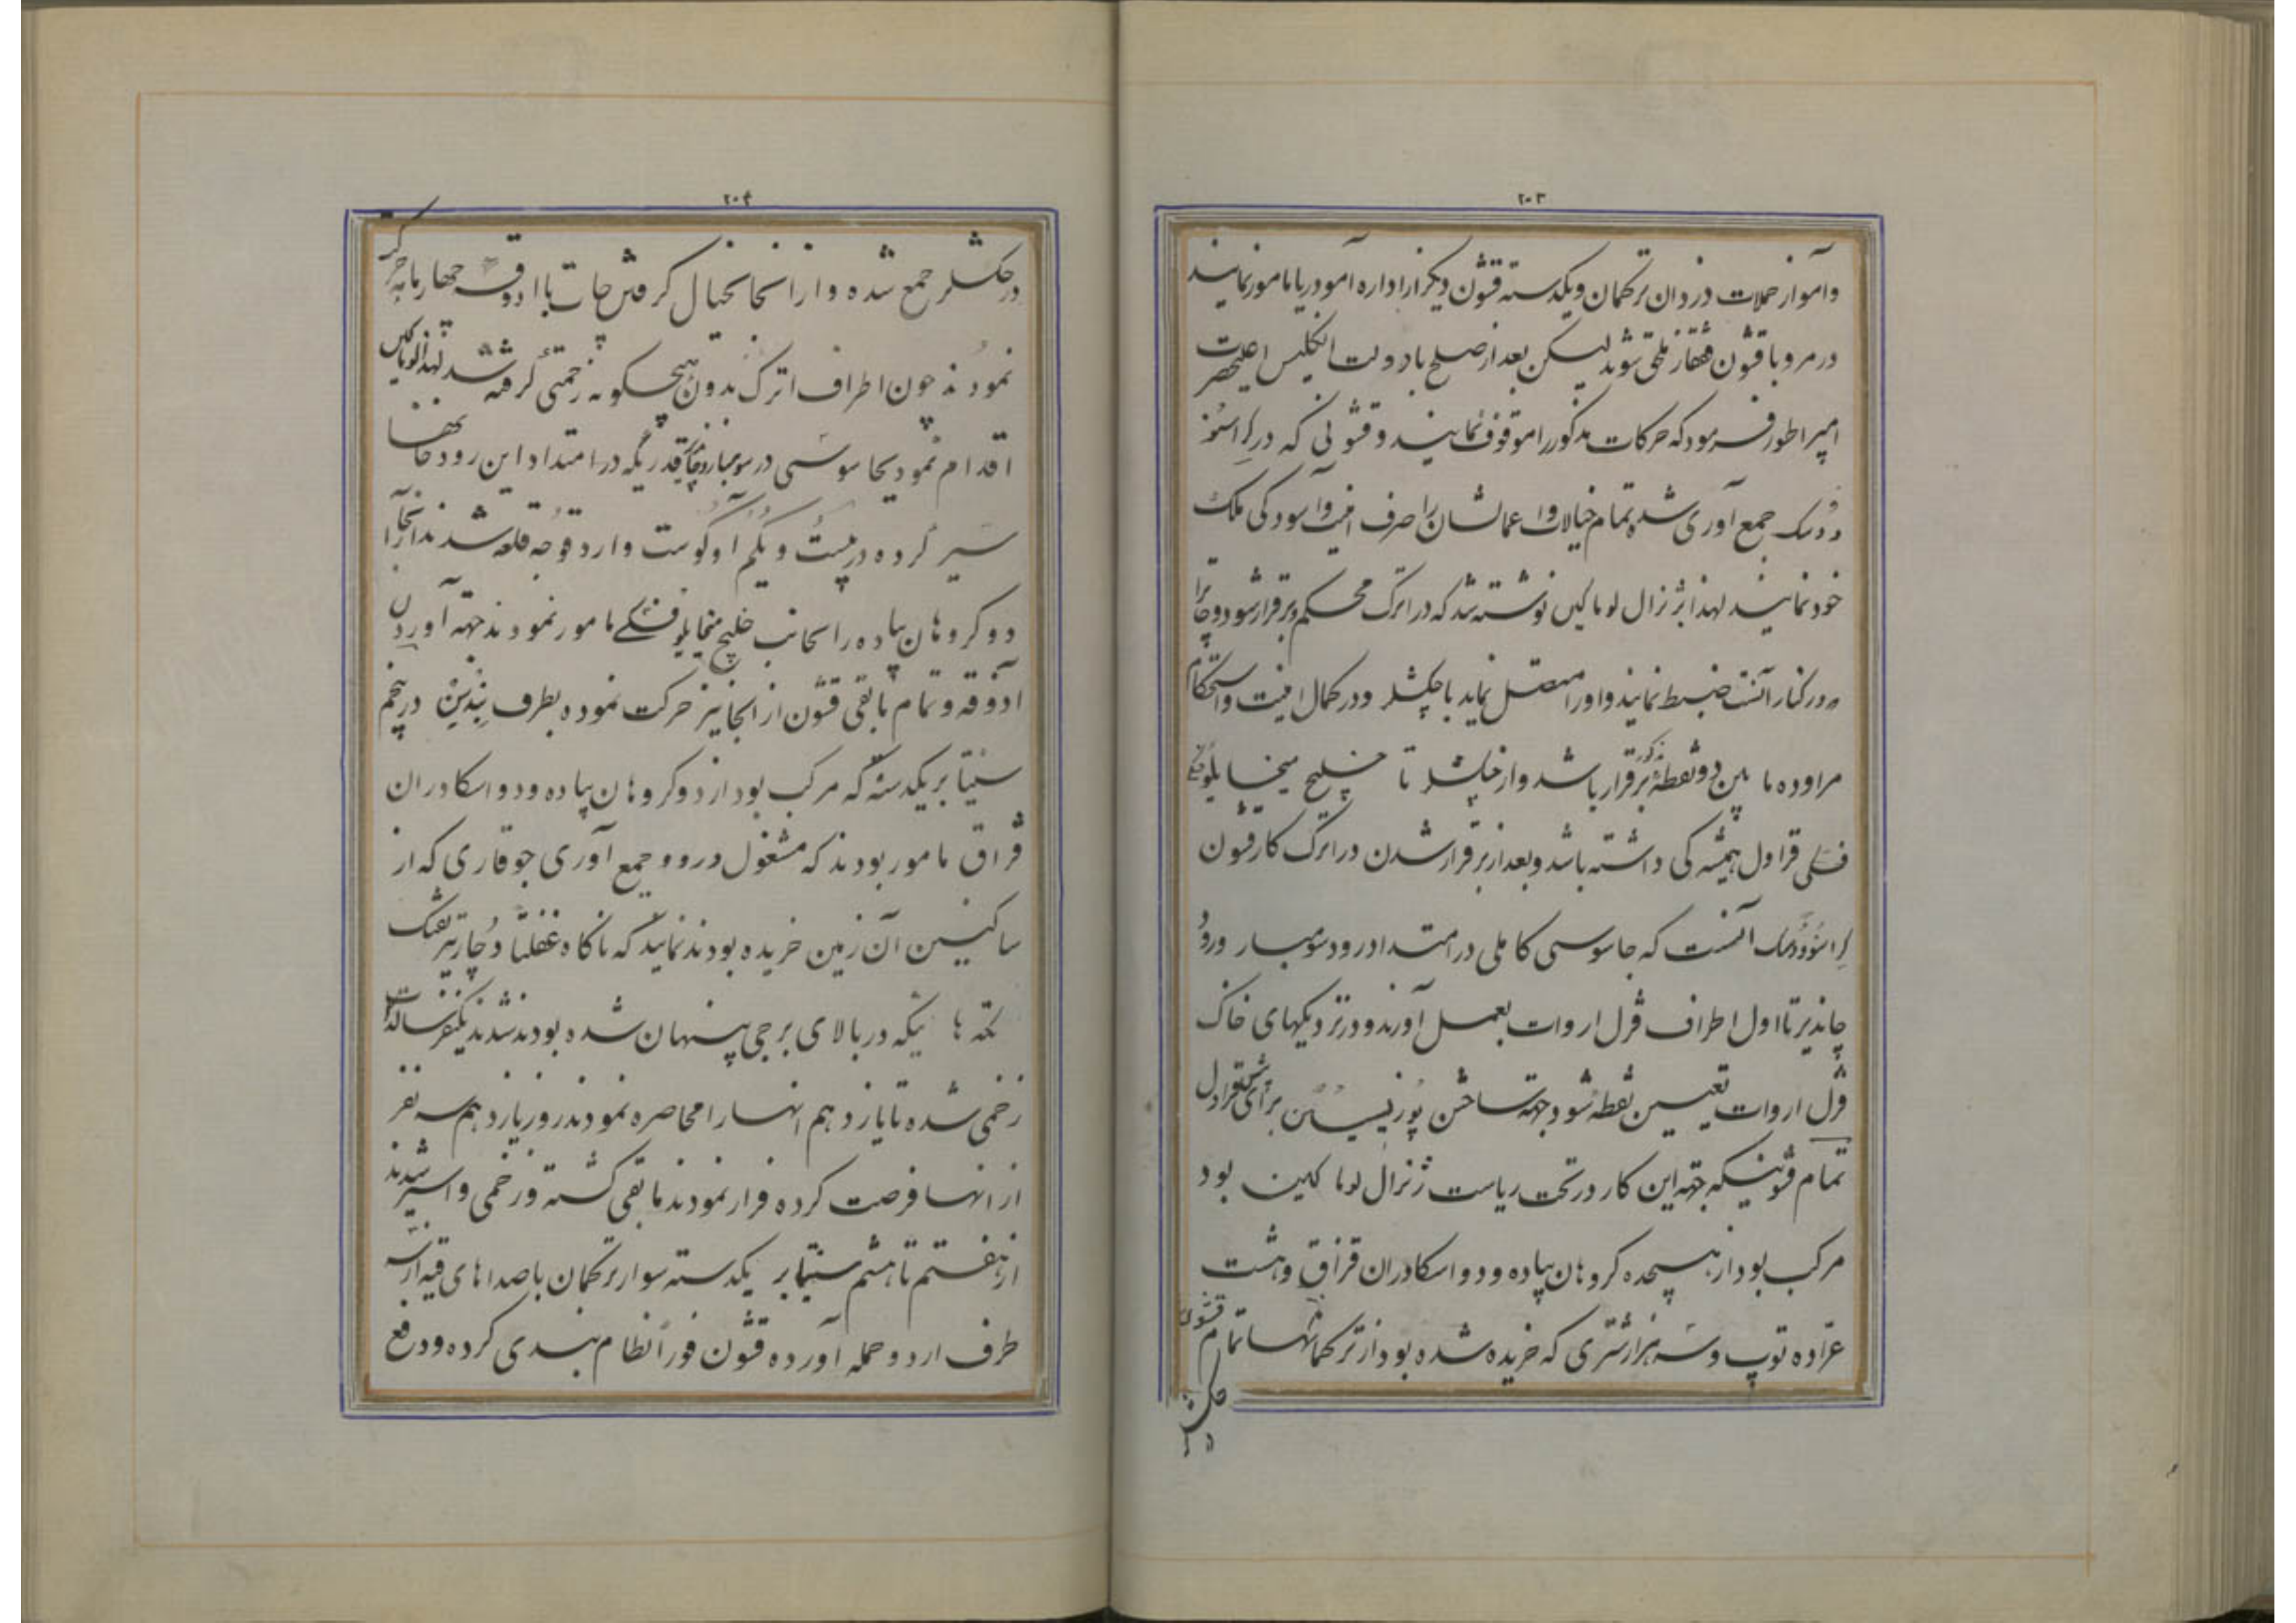 ۲۰۳
وآمو از حملات دزدان ترکمان و یکدسته قشون دیگر از اداره آمودریا مامور نمایند
در مرو با قشون قفقاز ملحق شوند لیکن بعد از صلح با دولت انگلیس اعلیحضرت
امپراطور فرمود که حرکات مذکور را موقوف نمایند و قشونی که در کراسنو
ودسک جمع آوری شده تمام خیالات و اعمالشان را صرف امنیت و آسودگی ملک
خود نمایند لهذا بژنرال لوماکین نوشته شد که در اترک محکم و برقرار شود و چات را
که در کنار آنست ضبط نمایند و او را متصل نماید با چکشلر و در کمال امنیت و استحکام
مراوده ما بین دو نقطه مذکور برقرار باشد و از چکشلر تا خلیج میخایلو
فسکی قراول همیشه کی داشته باشد و بعد از برقرار شدن در اترک کار قشون
کراسنوودسک آنست که جاسوسی کاملی در امتداد رود سومبار ورود
چاندیر تا اول اطراف قزل اروات بعمل آورند و در نزدیکهای خاک
قزل اروات تعیین نقطه شود جهة ساختن پوزیسین برای پیش قراول
تمام قشونیکه جهة این کار در تحت ریاست ژنرال لوماکین بود
مرکب بود از هیجده کروهان پیاده و دو اسکادران قزاق و هشت
عرّاده توپ و سه هزار شتری که خریده شده بود از ترکمانها تمام قشون
۲۰۴
در چکشلر جمع شده و از انجا بخیال کرفتن چات با آذوقه چهار ماهه حرکت
نمودند چون اطراف اترک بدون هیچگونه زحمتی کرفته شد لهذا لوماکین
اقدام نمود بجاسوسی در سومبار و چاندیر قدریکه در امتداد این رودخانها
سیر کرده در بیست و یکم آوگوست وارد قوجه قلعه شدند از آنجا
دو کروهان پیاده را بجانب خلیج میخایلوفسکی مامور نمودند جهة آوردن
آذوقه و تمام مابقی قشون از انجا نیز حرکت نموده بطرف بندسن در پنجم
سنتیابر یکدسته که مرکب بود از دو کروهان پیاده و دو اسکادران
قزاق مامور بودند که مشغول درو و جمع آوری جو قاری که از
ساکنین آن زمین خریده بودند نمایند که ناکاه غفلتا دچار تیر تفنک
تکه ها ئیکه در بالای برجی پنهان شده بودند شدند یکنفر سالدات
زخمی شده تا یازدهم انهـا را محاصره نمودند روز یازدهم سه نفر
از انهـا فرصت کرده فرار نمودند مابقی کشته و زخمی و اسیر شدند
از هفتم تا هشتم سنتیابر یکدسته سوار ترکمان با صداهای قیه از سه
طرف اردو حمله آورده قشون فوراً نظام بندی کرده و دفع